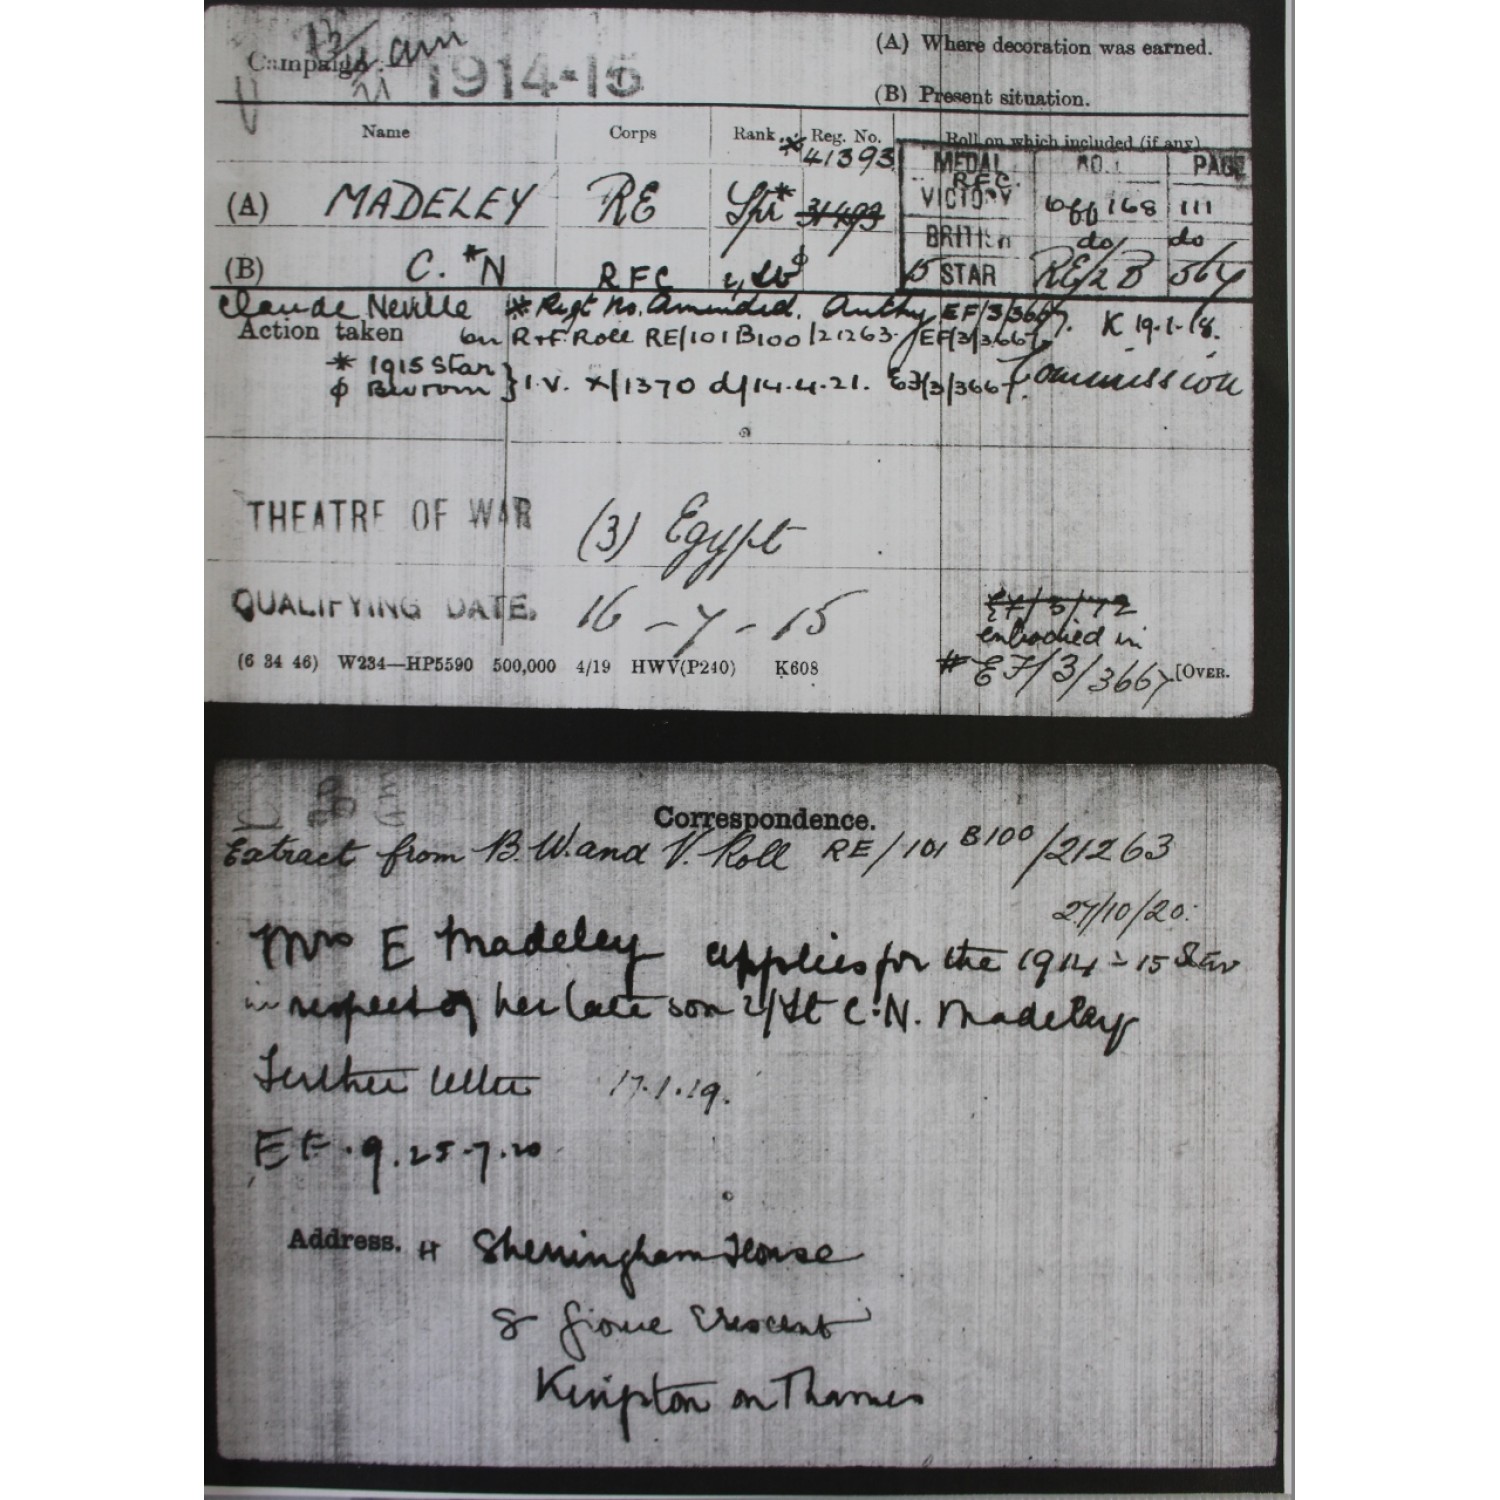 (A) Where decoration was earned.
Campaign :
1914-15
(B) Present situation.
Name Corps Rank Reg. No. Roll on which included (if any)
* 41393
MEDAL NO. PAGE
R.F.C.
(A) MADELEY RE Spr* 31493 VICTORY Off 168 111
BRITISH do do
(B) C. *N RFC 2/Lt ϕ 15 STAR RE/2 B 564
Claude Neville * Regt No. Amended. Authy EF/3/3667. K 19.1.18.
Action taken on R+F Roll RE/101B100/21263. EF/3/3667
* 1915 Star
ϕ BW } I.V. /1370 d/14.4.21. EF/3/3667. Commission
THEATRE OF WAR (3) Egypt
QUALIFYING DATE. 16 - 7 - 15
EF/3/72
embodied in
(6 34 46) W234—HP5590 500,000 4/19 HWV(P240) K608
# EF/3/3667 [OVER.
Correspondence.
Extract from B.W. and V. Roll RE/101 B100/21263
27/10/20.
Mrs E Madeley applies for the 1914-15 Star
in respect of her late son 2/Lt C.N. Madeley
Further letter 17.1.19.
EF.9.25.7.20
Address. # Sherringham House
8 Grove Crescent
Kingston on Thames